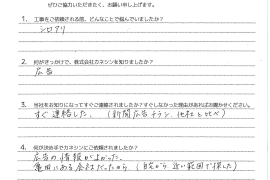 ぜひご協力いただきたく、お願い申し上げます。
1. 工事をご依頼される前、どんなことで悩んでいましたか?
シロアリ
2. 何がきっかけで、株式会社カネシンを知りましたか?
広告
3. 当社をお知りになってすぐご連絡されましたか?すぐしなかった理由があればお聞かせください。
すぐ連絡した。(新聞広告チラシ、他社と比べ)
4. 何が決め手でカネシンにご依頼されましたか?
広告の情報がよかった、
亀田にある会社だったから(自宅から近い範囲で探した)